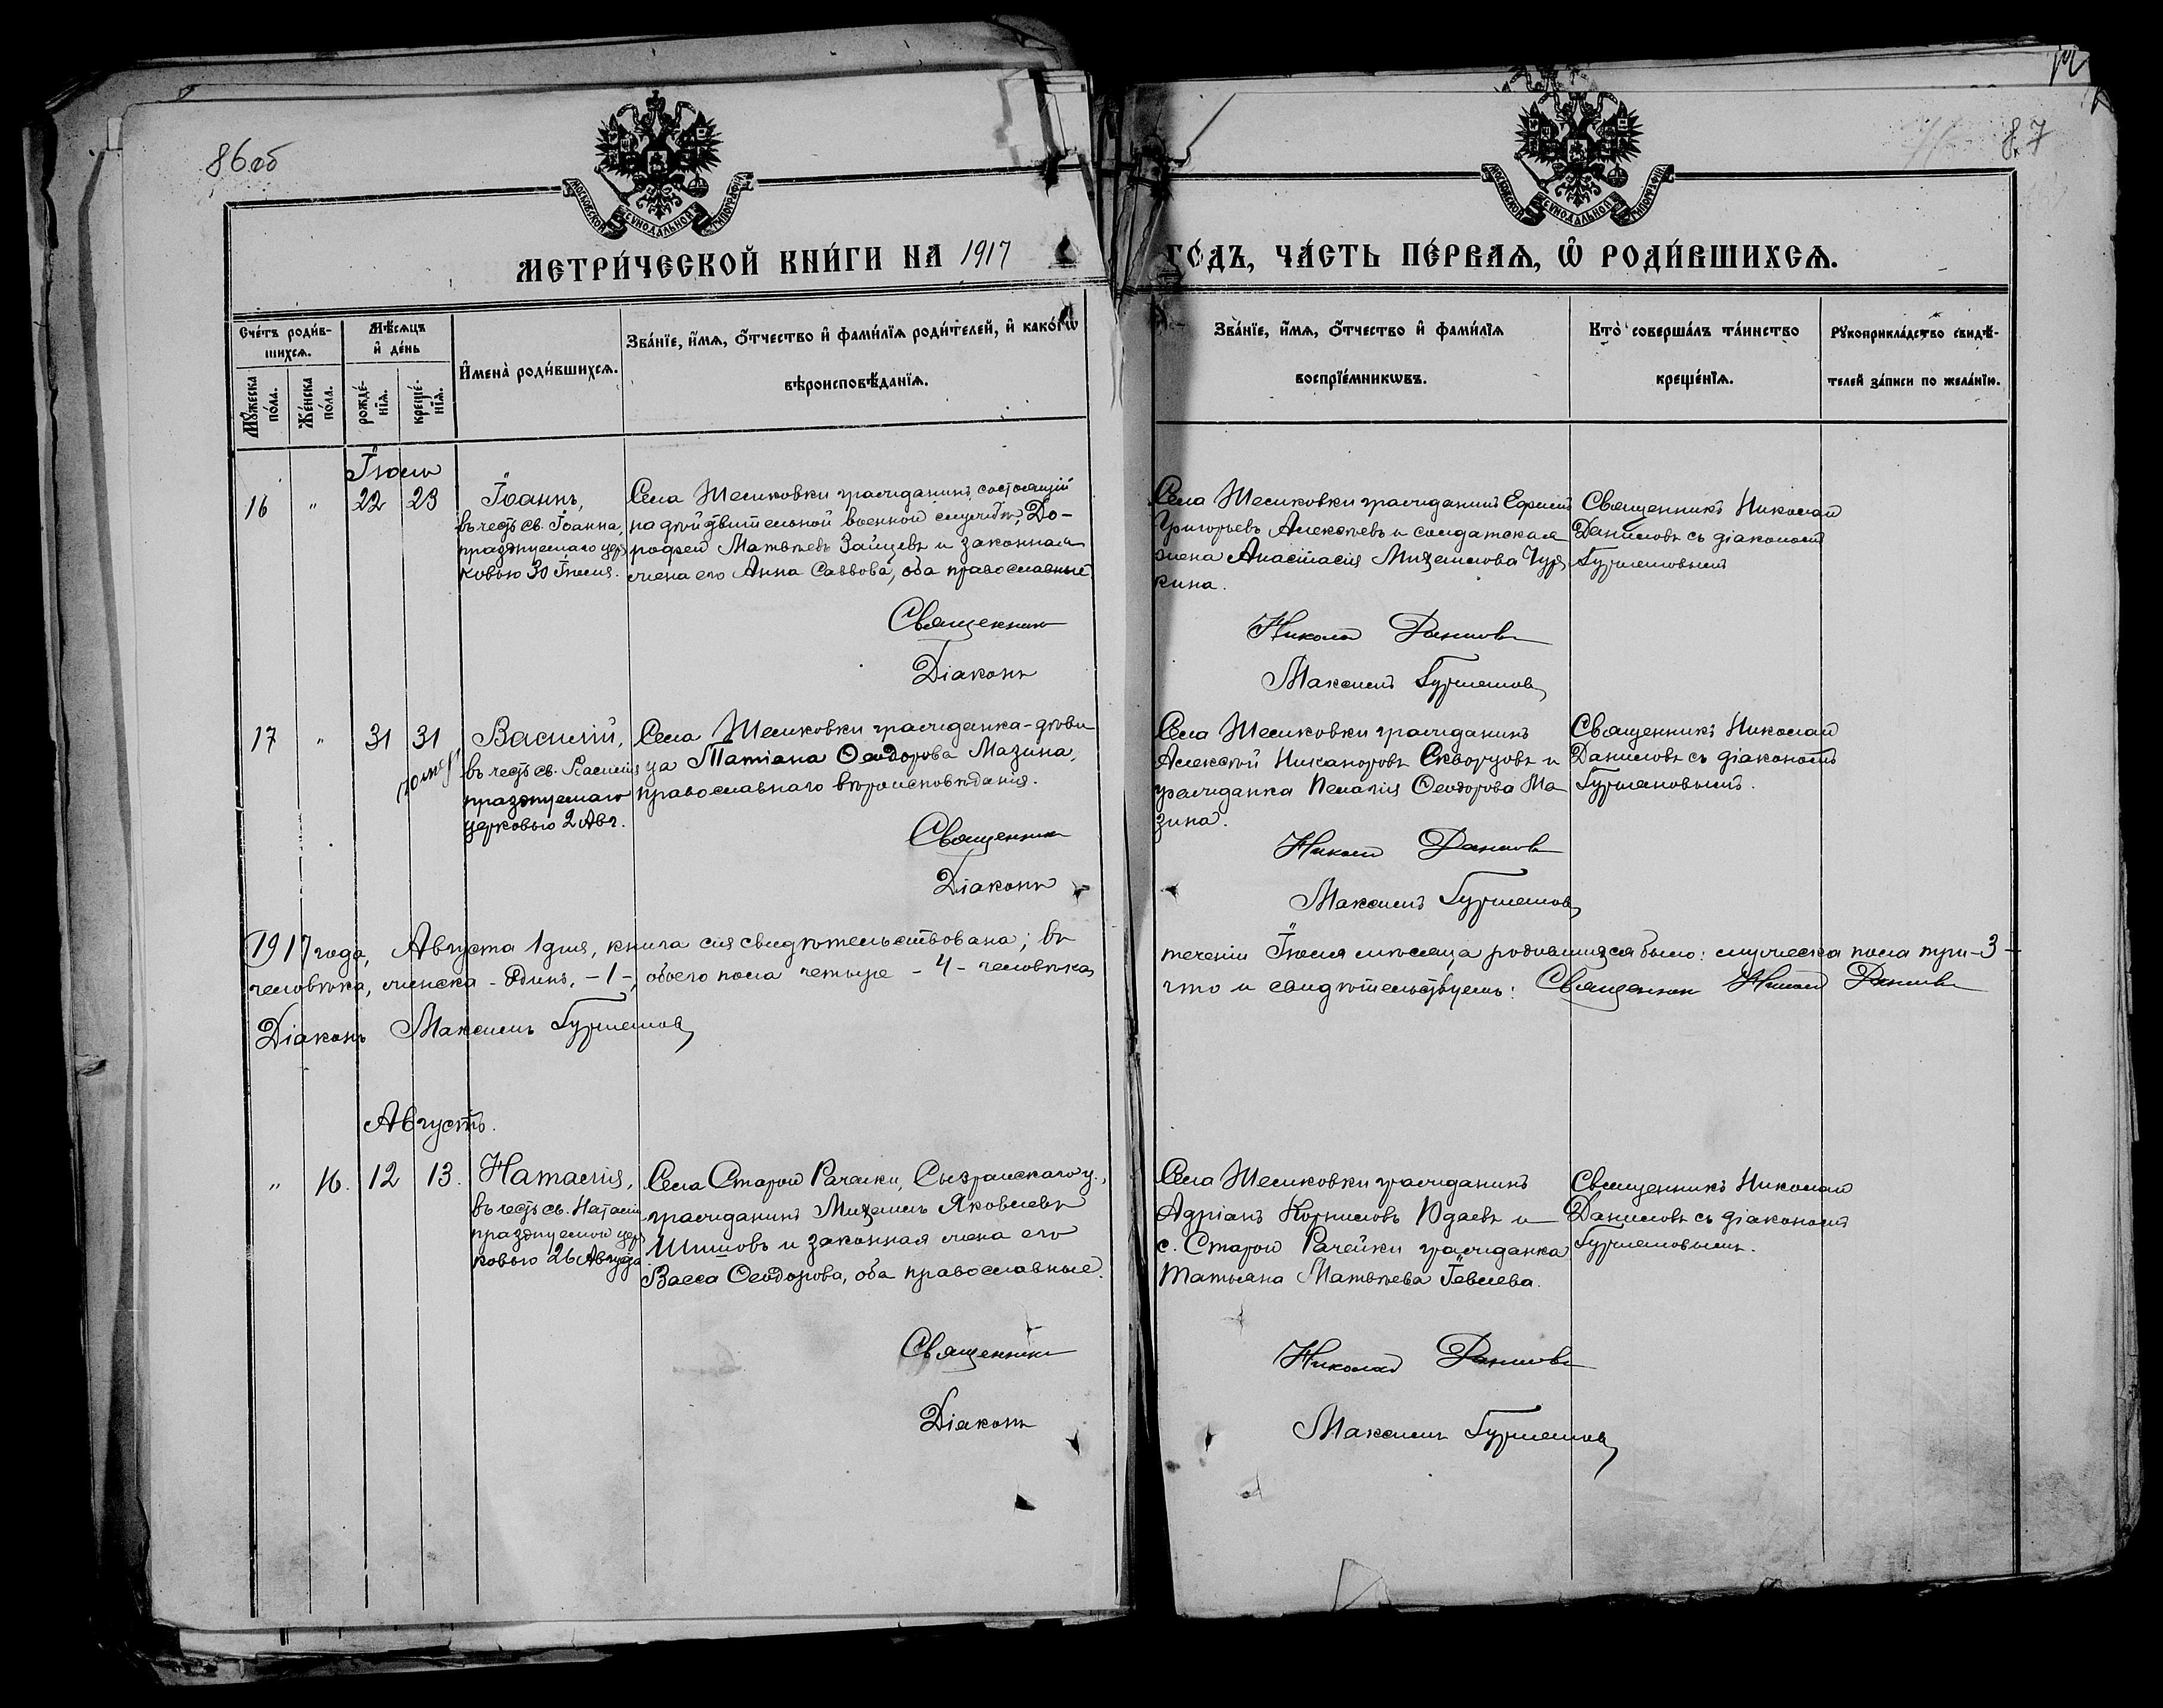 86об
87
МОСКОВСКОЙ СѴНОДАЛЬНОЙ ТИПОГРАФІИ
МОСКОВСКОЙ СѴНОДАЛЬНОЙ ТИПОГРАФІИ
МЕТРИ́ЧЕСКОЙ КНИ́ГИ НА 1917 ГО́ДЪ, ЧА́СТЬ ПЕ́РВАѦ, Ѽ РОДИ́ВШИХСѦ.
Сче́тъ роди́в-
шихсѧ.
Мꙋ́жеска по́ла.
Же́нска по́ла.
Мѣ́сѧцъ
и҆ де́нь
рожде́-
нїѧ.
креще́-
нїѧ.
И҆мена̀ роди́вшихсѧ.
Зва́нїе, и҆́мѧ, ѻ҆́тчество и҆ фами́лїѧ роди́телей, и҆ како́гѡ
вѣроисповѣ́данїѧ.
Зва́нїе, и҆́мѧ, ѻ҆́тчество и҆ фами́лїѧ
воспрїе́мникѡвъ.
Кто̀ соверша́лъ та́инство
креще́нїѧ.
Рꙋкоприкла́дство свидѣ́-
телей за́писи по жела́нїю.
Іюль
16 " 22 23
Іоаннъ,
въ честь св. Іоанна,
празднуемаго цер
ковью 30 Іюля.
Села Шелковки гражданинъ, состоящій
на дѣйствительной военной службѣ, До-
рофей Матвѣевъ Зайцевъ и законная
жена его Анна Саввова, оба православные
Села Шелковки гражданинъ Ефремъ
Григорьевъ Алексѣевъ и солдатская
жена Анастасія Михаилова Чур
кина.
Священникъ Николай
Даниловъ съ діакономъ
Гурмановымъ
Священникъ Николай Даниловъ
Діаконъ Максимъ Гурмановъ
17 " 31 31
Василій,
въ честь св. Василія
празднуемаго
церковью 2 Авг.
Села Шелковки гражданка-дѣви
ца Татіана Ѳеодорова Мазина,
православнаго вѣроисповѣданія.
Села Шелковки гражданинъ
Алексѣй Никаноровъ Скворцовъ и
гражданка Пелагія Ѳеодорова Ма
зина.
Священникъ Николай
Даниловъ съ діакономъ
Гурмановымъ.
Священникъ Николай Даниловъ
Діаконъ Максимъ Гурмановъ
1917 года, Августа 1 дня, книга сія свидѣтельствована; въ теченіи Іюля мѣсяца родившихся было: мужеска пола три-3-
человѣка, женска - одинъ, -1-, обоего пола четыре -4- человѣка, что и свидѣтельствуемъ: Священникъ Николай Даниловъ
Діаконъ Максимъ Гурмановъ
Августъ.
" 16. 12 13.
Наталія,
въ честь св. Наталіи
празднуемой цер
ковью 26 Августа
Села Старой Рачейки, Сызранскаго у.,
гражданинъ Михаилъ Яковлевъ
Шишовъ и законная жена его
Васса Ѳеодорова, оба православные.
Села Шелковки гражданинъ
Адріанъ Корниловъ Юдаевъ и
с. Старой Рачейки гражданка
Татьяна Матвѣева Іевлева.
Священникъ Николай
Даниловъ съ діакономъ
Гурмановымъ.
Священникъ Николай Даниловъ
Діаконъ Максимъ Гурмановъ